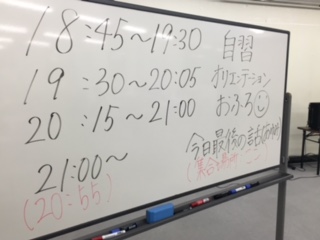 18:45～19:30 自習
19:30～20:05 オリエンテーション
20:15～21:00 おふろ☺
21:00～ 今日最後の話
(20:55)